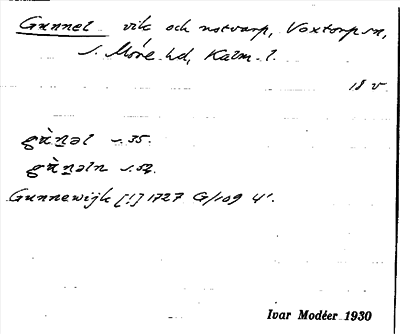 Gunnel vik och notvarp, Voxtorp sn,
S. Möre hd, Kalm. l.
18 v
gùnəl s. 35.
gùnəln s. 52.
Gunnewijk [!] 1727 G/109 4¹.
Ivar Modéer 1930